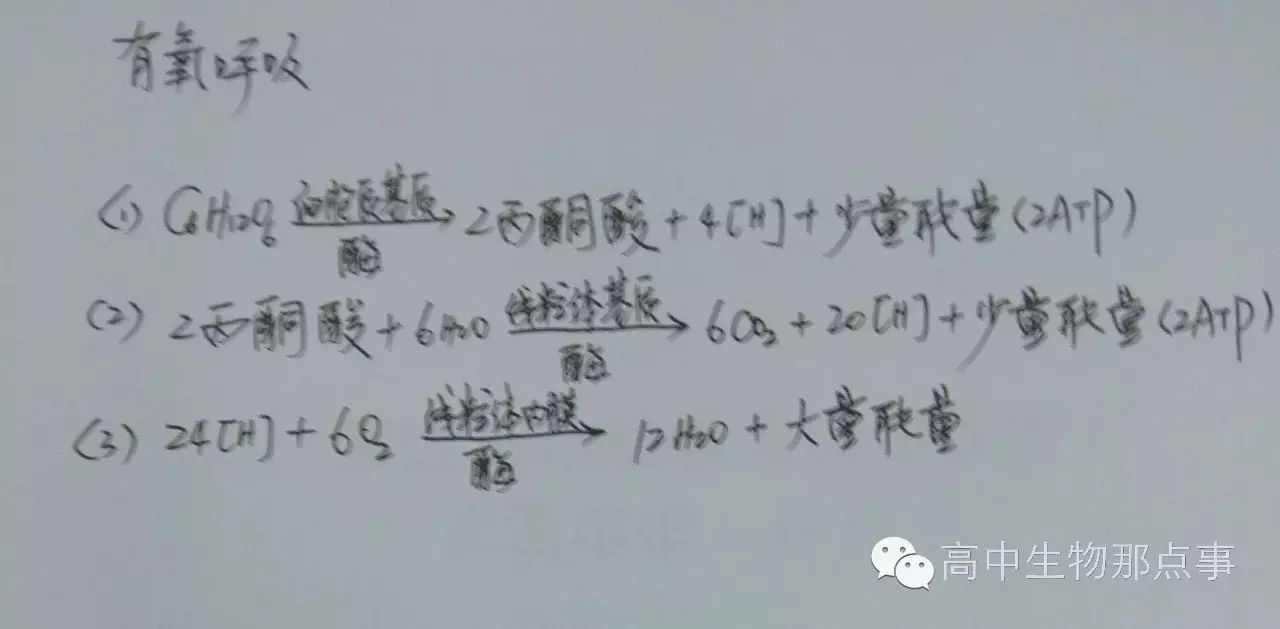 有氧呼吸
(1) C6H12O6 细胞质基质 酶 2丙酮酸+4[H]+少量能量(2ATP)
(2) 2丙酮酸+6H2O 线粒体基质 酶 6CO2+20[H]+少量能量(2ATP)
(3) 24[H]+6O2 线粒体内膜 酶 12H2O+大量能量
高中生物那点事